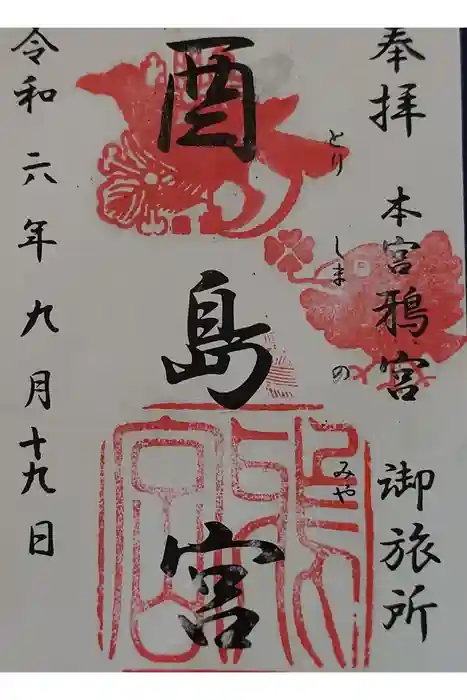 奉拝 本宮鴉宮 御旅所
酉島宮
とりしまのみや
令和六年九月十九日